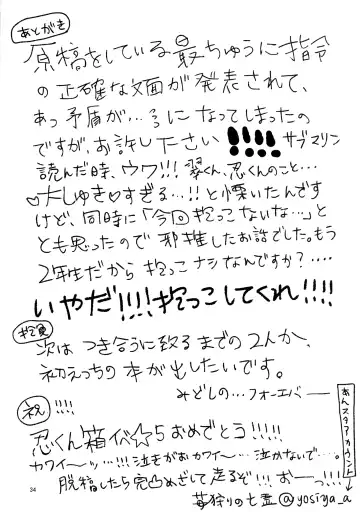 あとがき
原稿をしている最ちゅうに指令
の正確な文面が発表されて、
あっ矛盾が…?になってしまったの
ですが、お許し下さい!!!! サブマリン
読んだ時、ウワ!!! 翠くん、忍くんのこと…
♡大しゅき♡すぎる…!!と慄いたんです
けど、同時に「今回抱っこないな…」と
とも思ったので邪推したお話でした。もう
2年生だから抱っこナシなんですか?....
いやだ!!!!抱っこしてくれ!!!!
次は つき合うに致るまでの2人か、
初えっちの本が出したいです。
みどしの…フォーエバー
祝!!!!
忍くん箱イベ☆5おめでとう!!!!!
カワイ〜ッ…!!!泣きがおカワイ〜…泣かないで…。
脱稿したら完凸めざして走るぞ!!! おーっ!!!
あんスタアカウント→
苺狩りの七霊@yosiya_a
34